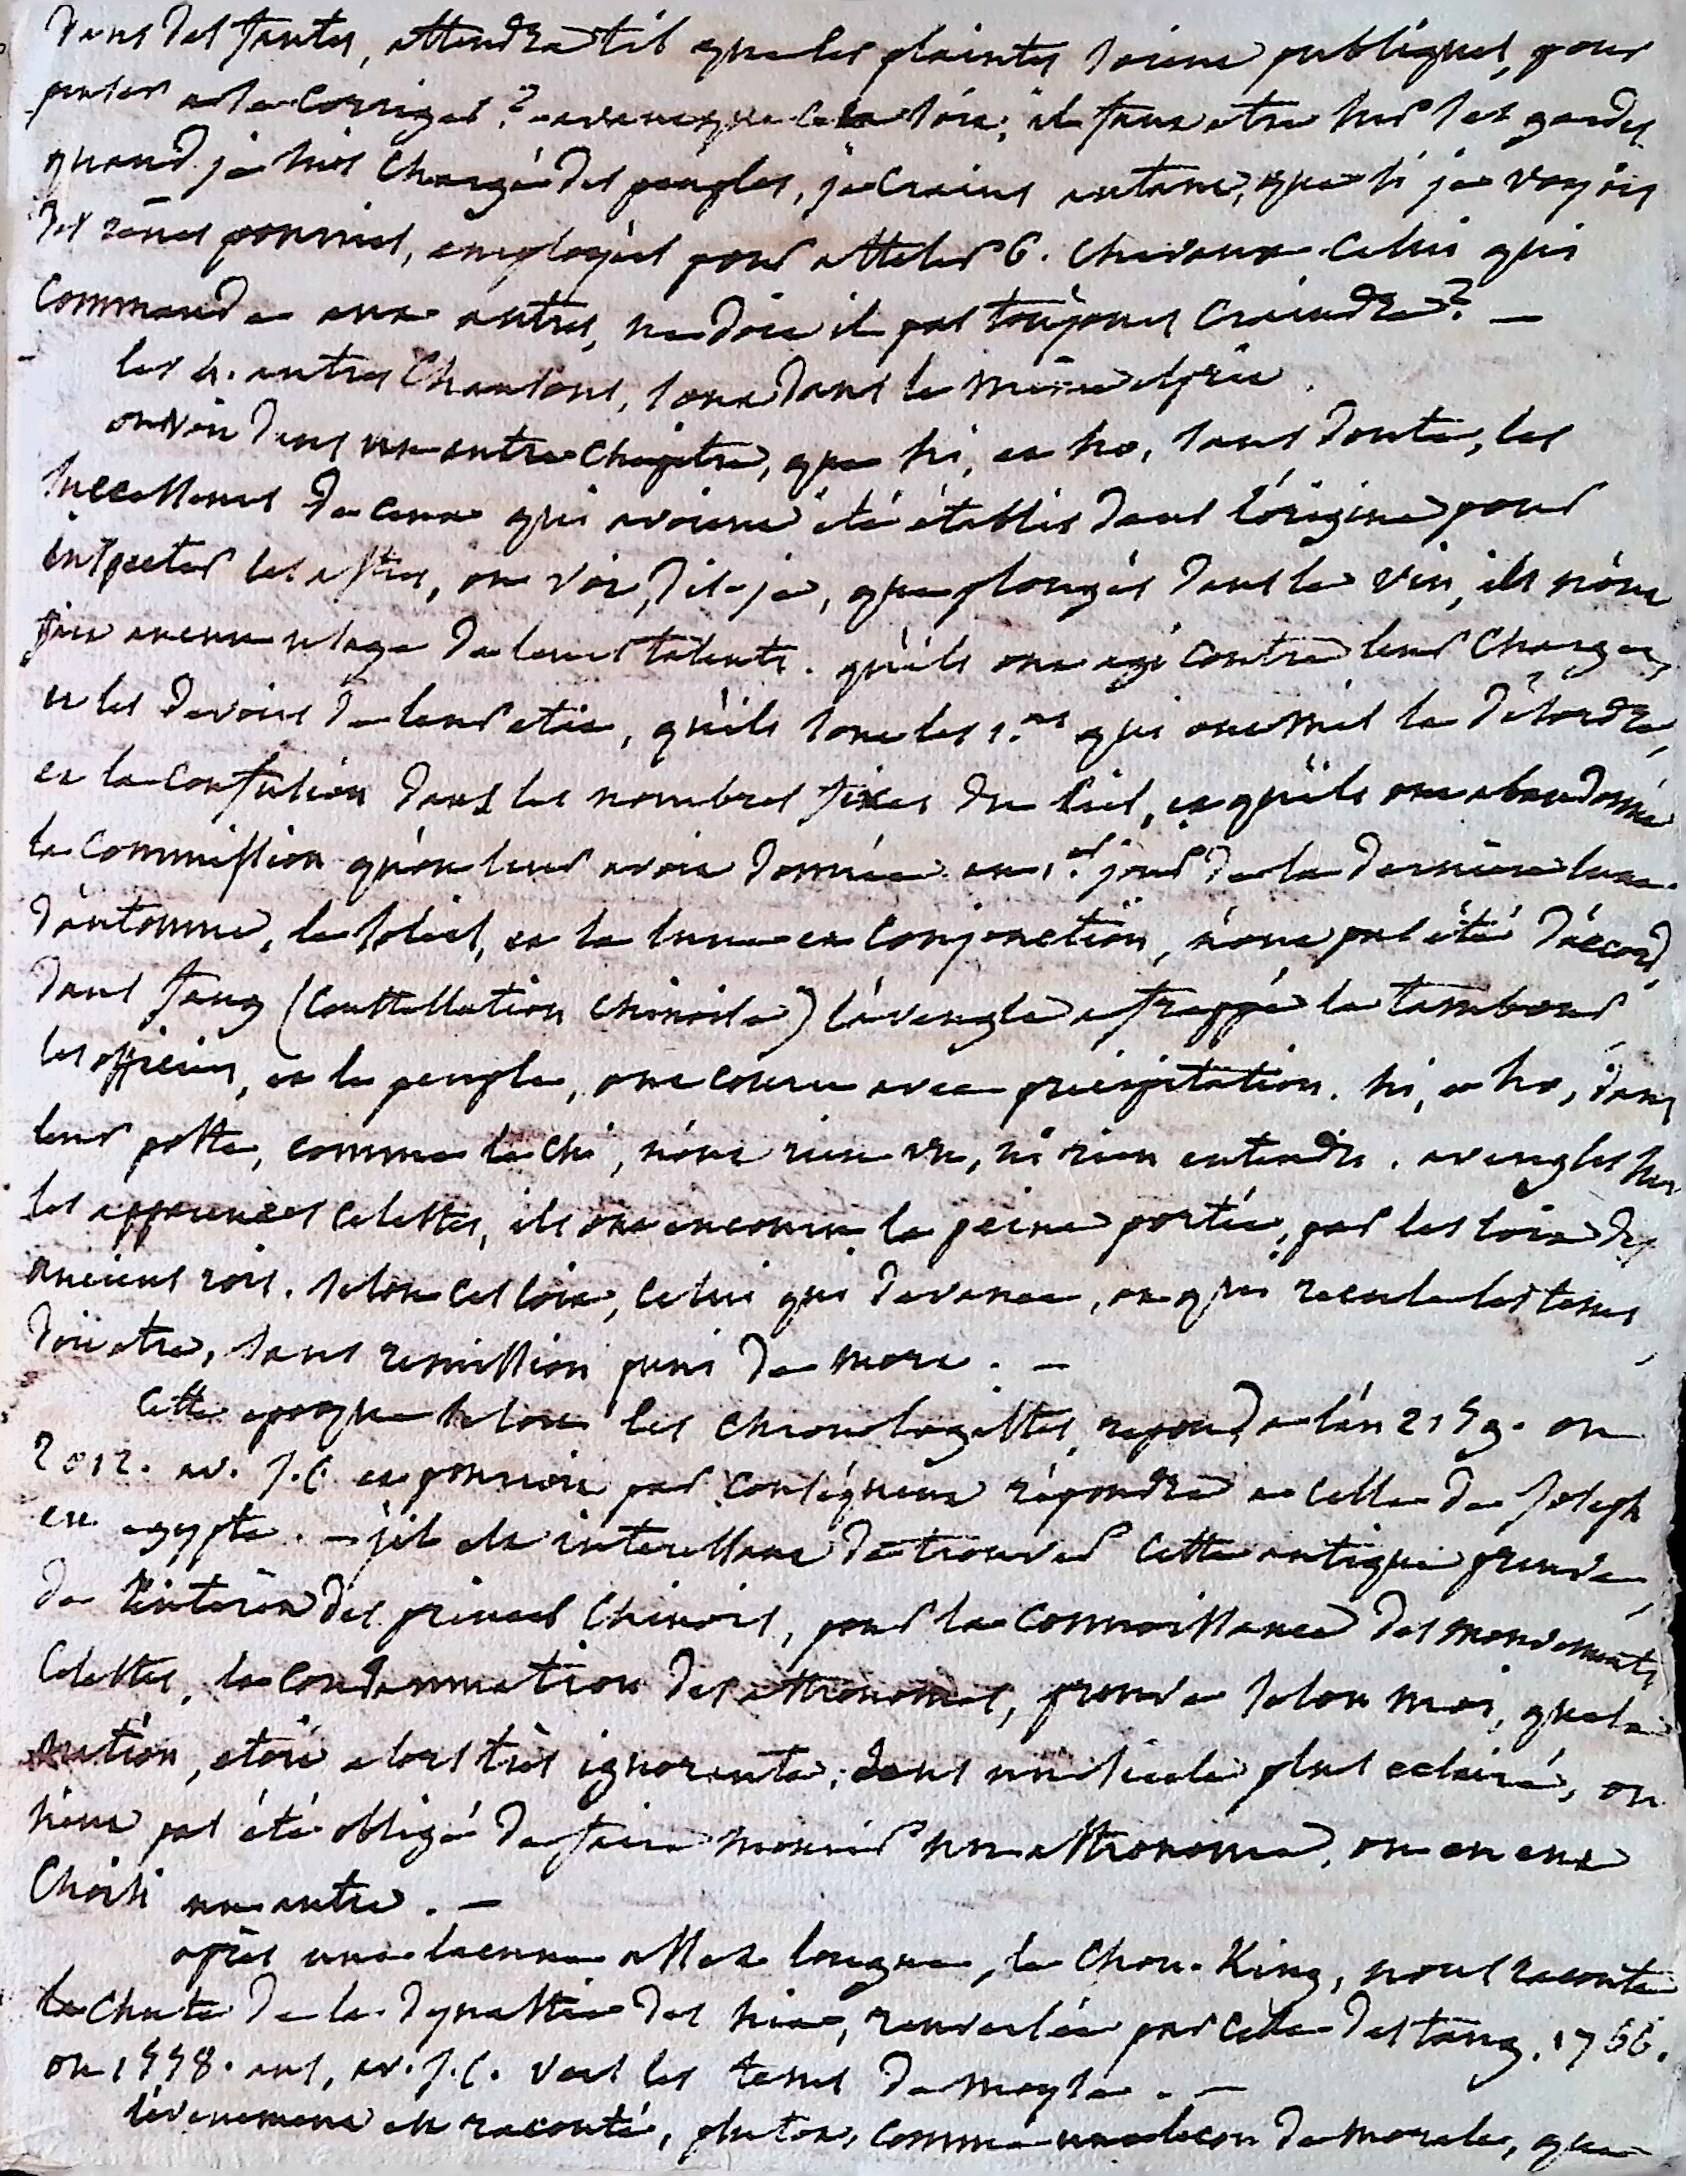 dans des fautes, attendra t'il que les plaintes soient publiques, pour
penser a se corriger? avant que cela soit; il faut etre sur ses gardes
quand je suis chargé des peuples, je crains autant, que si je voyois
des rênes pourries, employées pour atteler 6. chevaux celui qui
commande aux autres, ne doit il pas toujours craindre? —
les 4. autres chansons, sont dans le même esprit.
on voit dans un autre chapitre, que hi, et ho, sans doute, les
successeurs de ceux qui avoient été établis dans l'origine pour
inspecter les astres, on voit, dis-je, que plongés dans le vin, ils n'ont
fait aucun usage de leurs talents. qu'ils ont agi contre leur charge,
et les devoirs de leur etat, qu'ils sont les 1.ers qui ont mis le désordre,
et la confusion dans les nombres fixes du ciel, et qu'ils ont abandonné
la commission qu'on leur avoit donnée. au 1.er jour de la derniere lune
d'automne, le soleil, et la lune en conjonction, n'ont pas été d'accord
dans fang (constellation chinoise) l'aveugle a frappé le tambour
les officiers, et le peuple, ont couru avec précipitation. hi, et ho, dans
leur poste, comme le chi, n'ont rien vu, ni rien entendu. aveugles sur
les apparences celestes, ils ont encouru la peine portée, par les loix des
anciens rois. selon ces loix, celui qui devance, ou qui recule les tems,
doit etre, sans remission puni de mort. —
Cette epoque selon les chronologistes, repond a l'an 2159. ou
2012. av. J.C. et pourroit par conséquent répondre a celle de Joseph
en egypte. — il est interessant de trouver cette antique preuve,
de l'interêt des princes chinois, pour la connoissance des mouvements
celestes, la condamnation des astronomes, prouve selon moi, que la
nation, etoit alors très ignorante; dans un siecle plus eclairé, on
n'eut pas été obligé de faire mourir un astronome, on en eut
choisi un autre. —
après une lacune assez longue, le Chou-King, nous raconte
la chute de la dynastie des hia, renversée par celle des tang. 1766.
ou 1558. ans, av. J.C. vers les tems de moyse. —
l'evenement est raconté, plutot, comme une leçon de morale, que